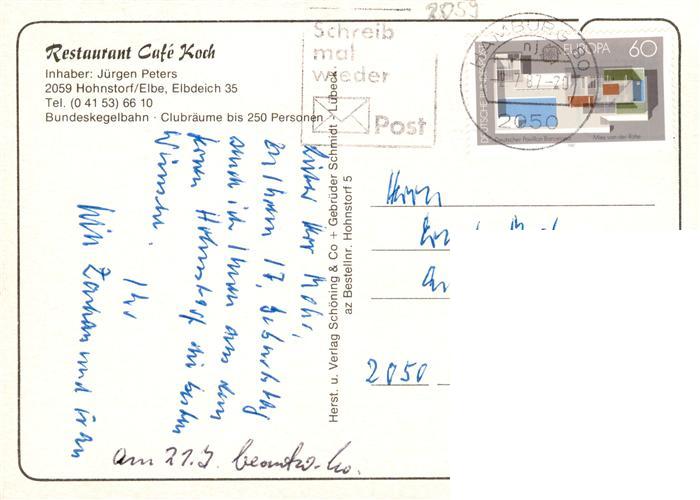 2059
Restaurant Café Koch
Inhaber: Jürgen Peters
2059 Hohnstorf/Elbe, Elbdeich 35
Tel. (0 41 53) 66 10
Bundeskegelbahn · Clubräume bis 250 Personen
Schreib
mal
wieder
Post
HAMBURG 80
nj
7.87-20
2050
DEUTSCHE BUNDESPOST
EUROPA 60
Deutscher Pavillon Barcelona
Mies van der Rohe
Herst. u. Verlag Schöning & Co + Gebrüder Schmidt - Lübeck
az Bestellnr. Hohnstorf 5
Lieber Herr
Zu Ihrem 17. Geburtstag
auch ich Ihnen aus dem
fernen Hohnstorf die besten
Wünsche.
Ihr
Herrn
2050
am 21.7.